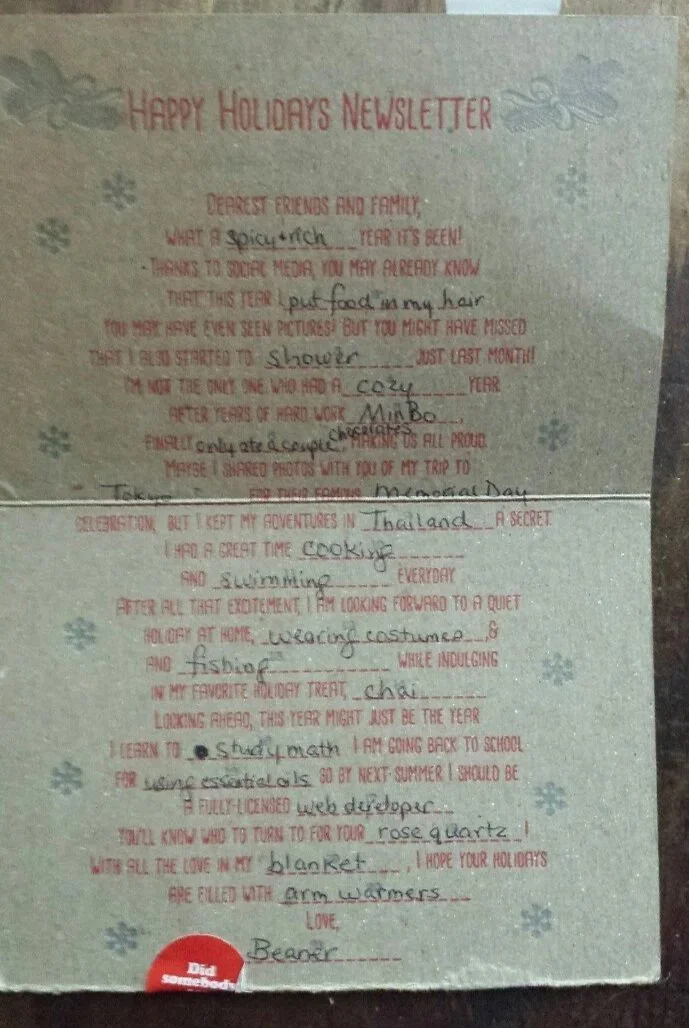 HAPPY HOLIDAYS NEWSLETTER
DEAREST FRIENDS AND FAMILY,
WHAT A spicy + rich YEAR IT'S BEEN!
THANKS TO SOCIAL MEDIA, YOU MAY ALREADY KNOW
THAT THIS YEAR I put food in my hair
YOU MAY HAVE EVEN SEEN PICTURES! BUT YOU MIGHT HAVE MISSED
THAT I ALSO STARTED TO shower JUST LAST MONTH!
I'M NOT THE ONLY ONE WHO HAD A cozy YEAR
AFTER YEARS OF HARD WORK MinBo,
FINALLY only ate a couple chocolates, MAKING US ALL PROUD.
MAYBE I SHARED PHOTOS WITH YOU OF MY TRIP TO
Tokyo FOR THEIR FAMOUS Memorial Day
CELEBRATION, BUT I KEPT MY ADVENTURES IN Thailand A SECRET.
I HAD A GREAT TIME cooking
AND swimming EVERYDAY
AFTER ALL THAT EXCITEMENT, I AM LOOKING FORWARD TO A QUIET
HOLIDAY AT HOME, wearing costumes, &
AND fishing WHILE INDULGING
IN MY FAVORITE HOLIDAY TREAT, chai
LOOKING AHEAD, THIS YEAR MIGHT JUST BE THE YEAR
I LEARN TO study math I AM GOING BACK TO SCHOOL
FOR using essential oils SO BY NEXT SUMMER I SHOULD BE
A FULLY-LICENSED web developer
YOU'LL KNOW WHO TO TURN TO FOR YOUR rose quartz!
WITH ALL THE LOVE IN MY blanket, I HOPE YOUR HOLIDAYS
ARE FILLED WITH arm warmers
LOVE,
Beaner
Did
somebody